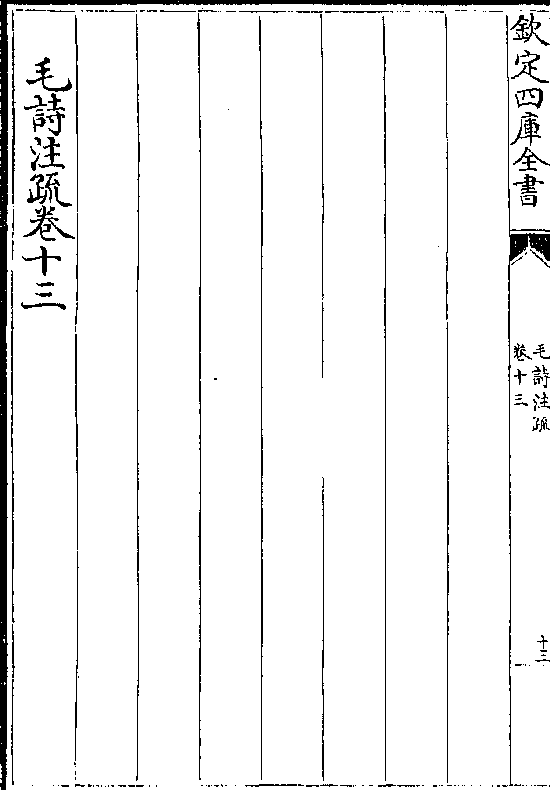 欽定四庫全書
毛詩注疏
卷十三
十三
毛詩注疏卷十三